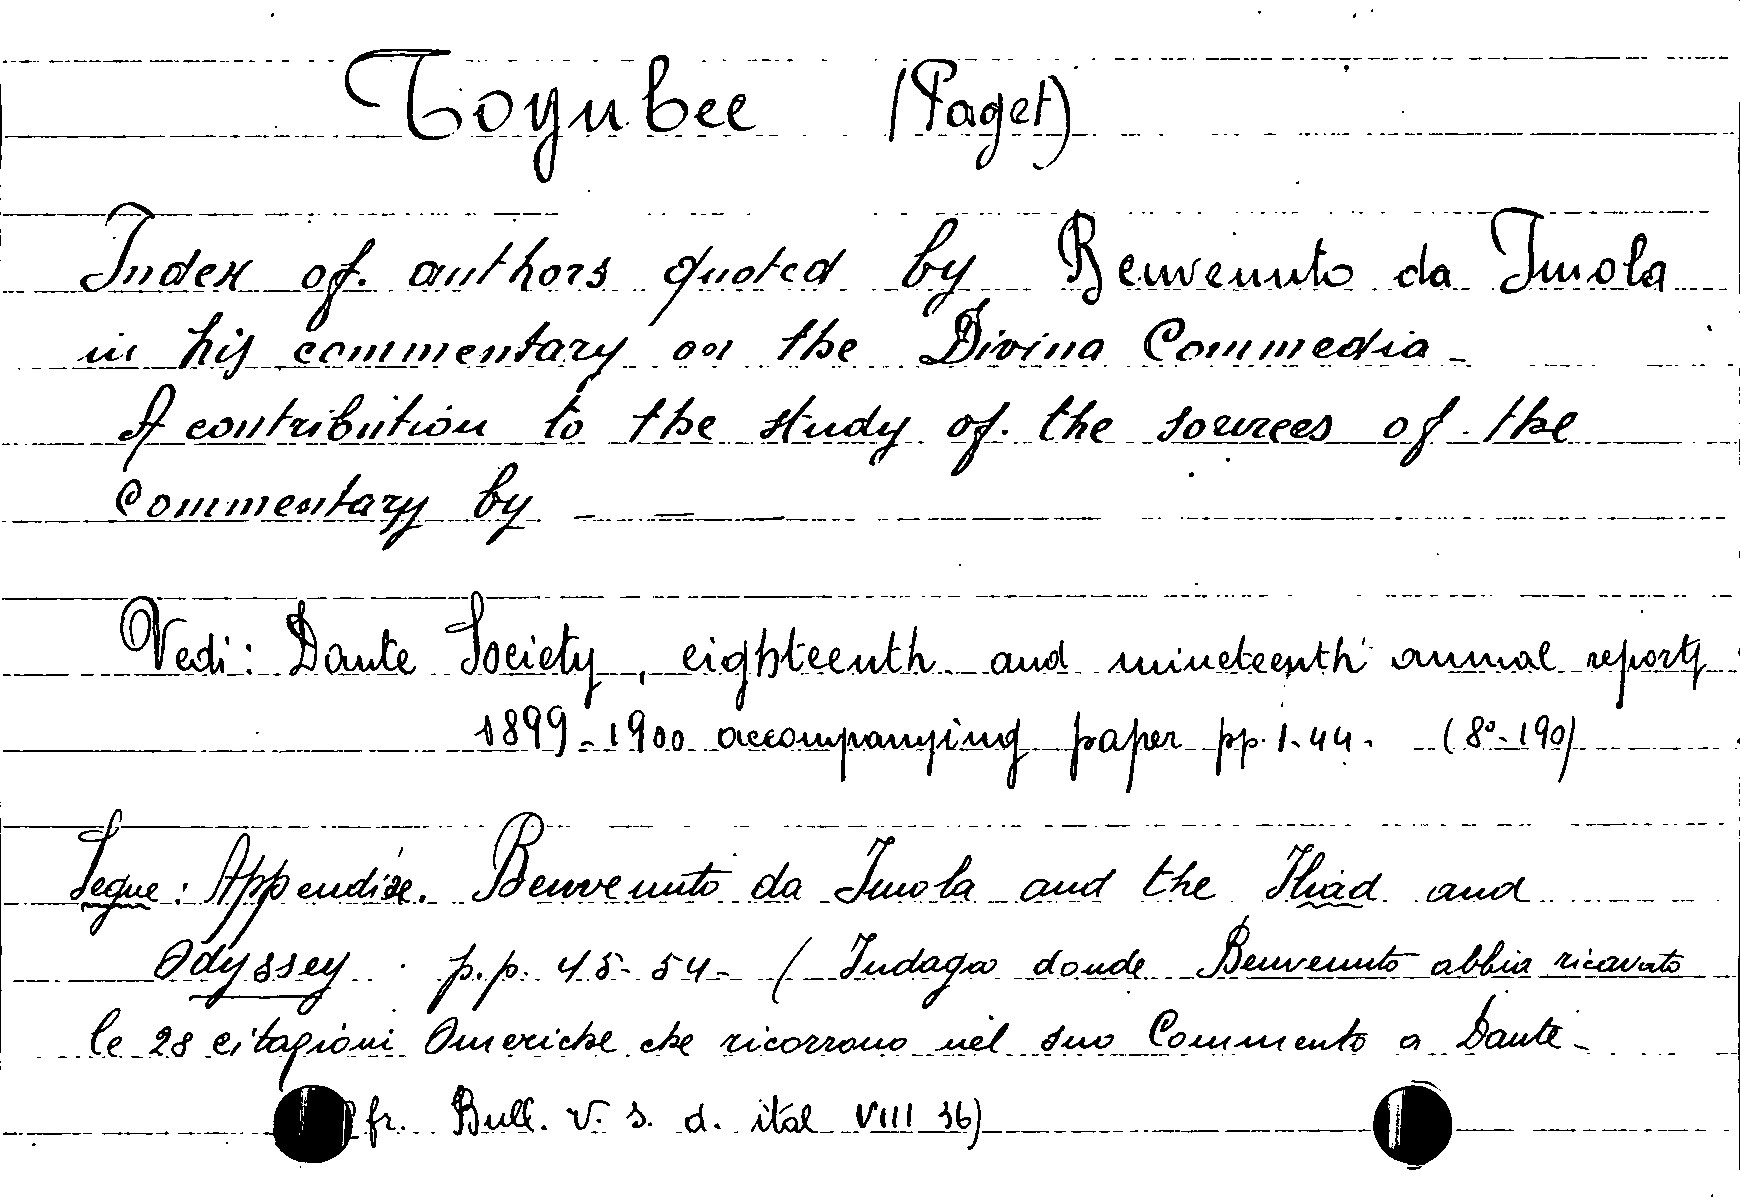 Toynbee (Paget)
Index of authors quoted by Benvenuto da Imola
in his commentary on the Divina Commedia -
A contribution to the study of the sources of the
Commentary by - —
Vedi: Dante Society, eighteenth and nineteenth annual reports
1899-1900 accompanying paper pp. 1-44. (8º-190)
Segue: Appendixe. Benvenuto da Imola and the Iliad and
Odyssey. p.p. 45-54- (Indaga donde Benvenuto abbia ricavato
le 28 citazioni Omeriche che ricorrono nel suo Commento a Dante -
Cfr. Bull. V. s. d. ital VIII 36)